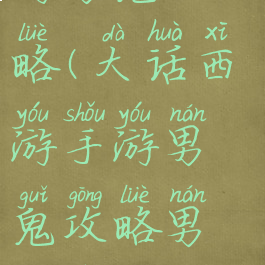 lüè dà huà xī
略(大话西
yóu shǒu yóu nán
游手游男
guǐ gōng lüè nán
鬼攻略男